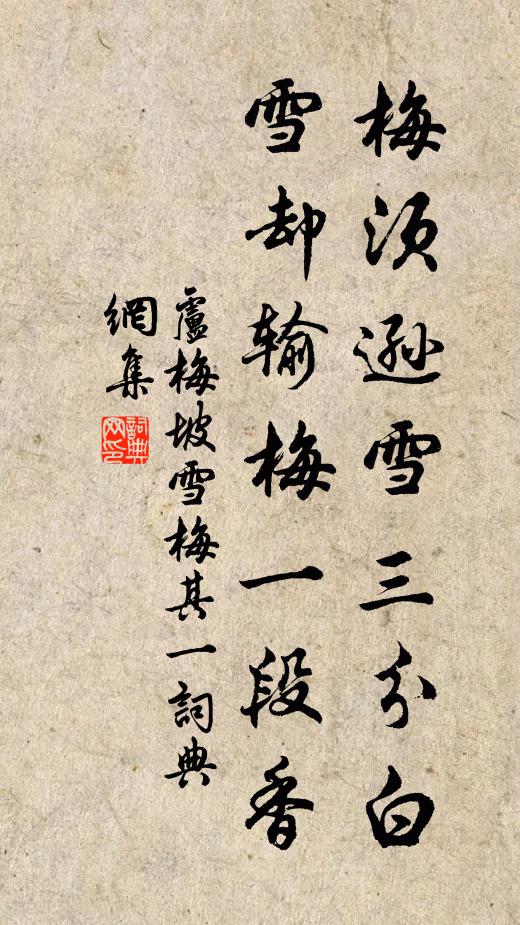 梅須遜雪三分白
雪却輸梅一段香
盧梅坡雪梅其一詞典
網集
詞典網印